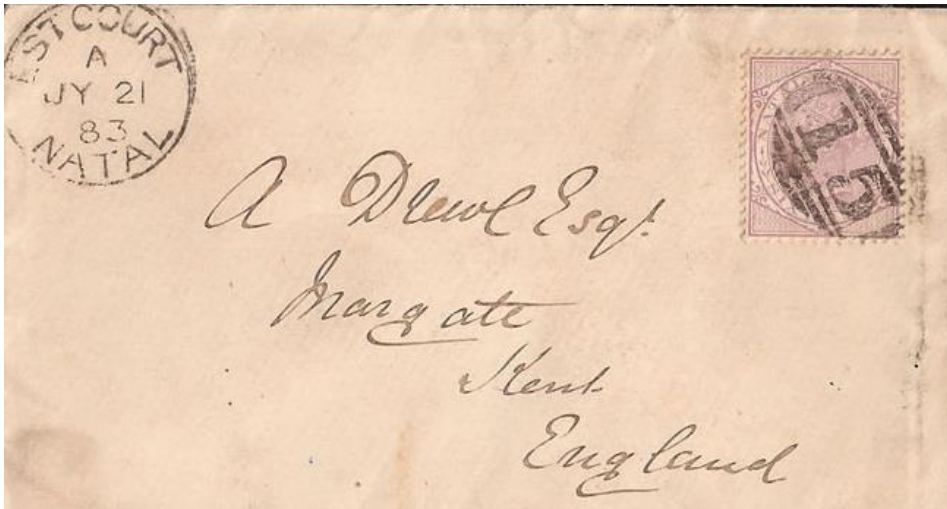 ESTCOURT
A
JY 21
83
NATAL
15
A Drewe Esqr.
Margate
Kent
England